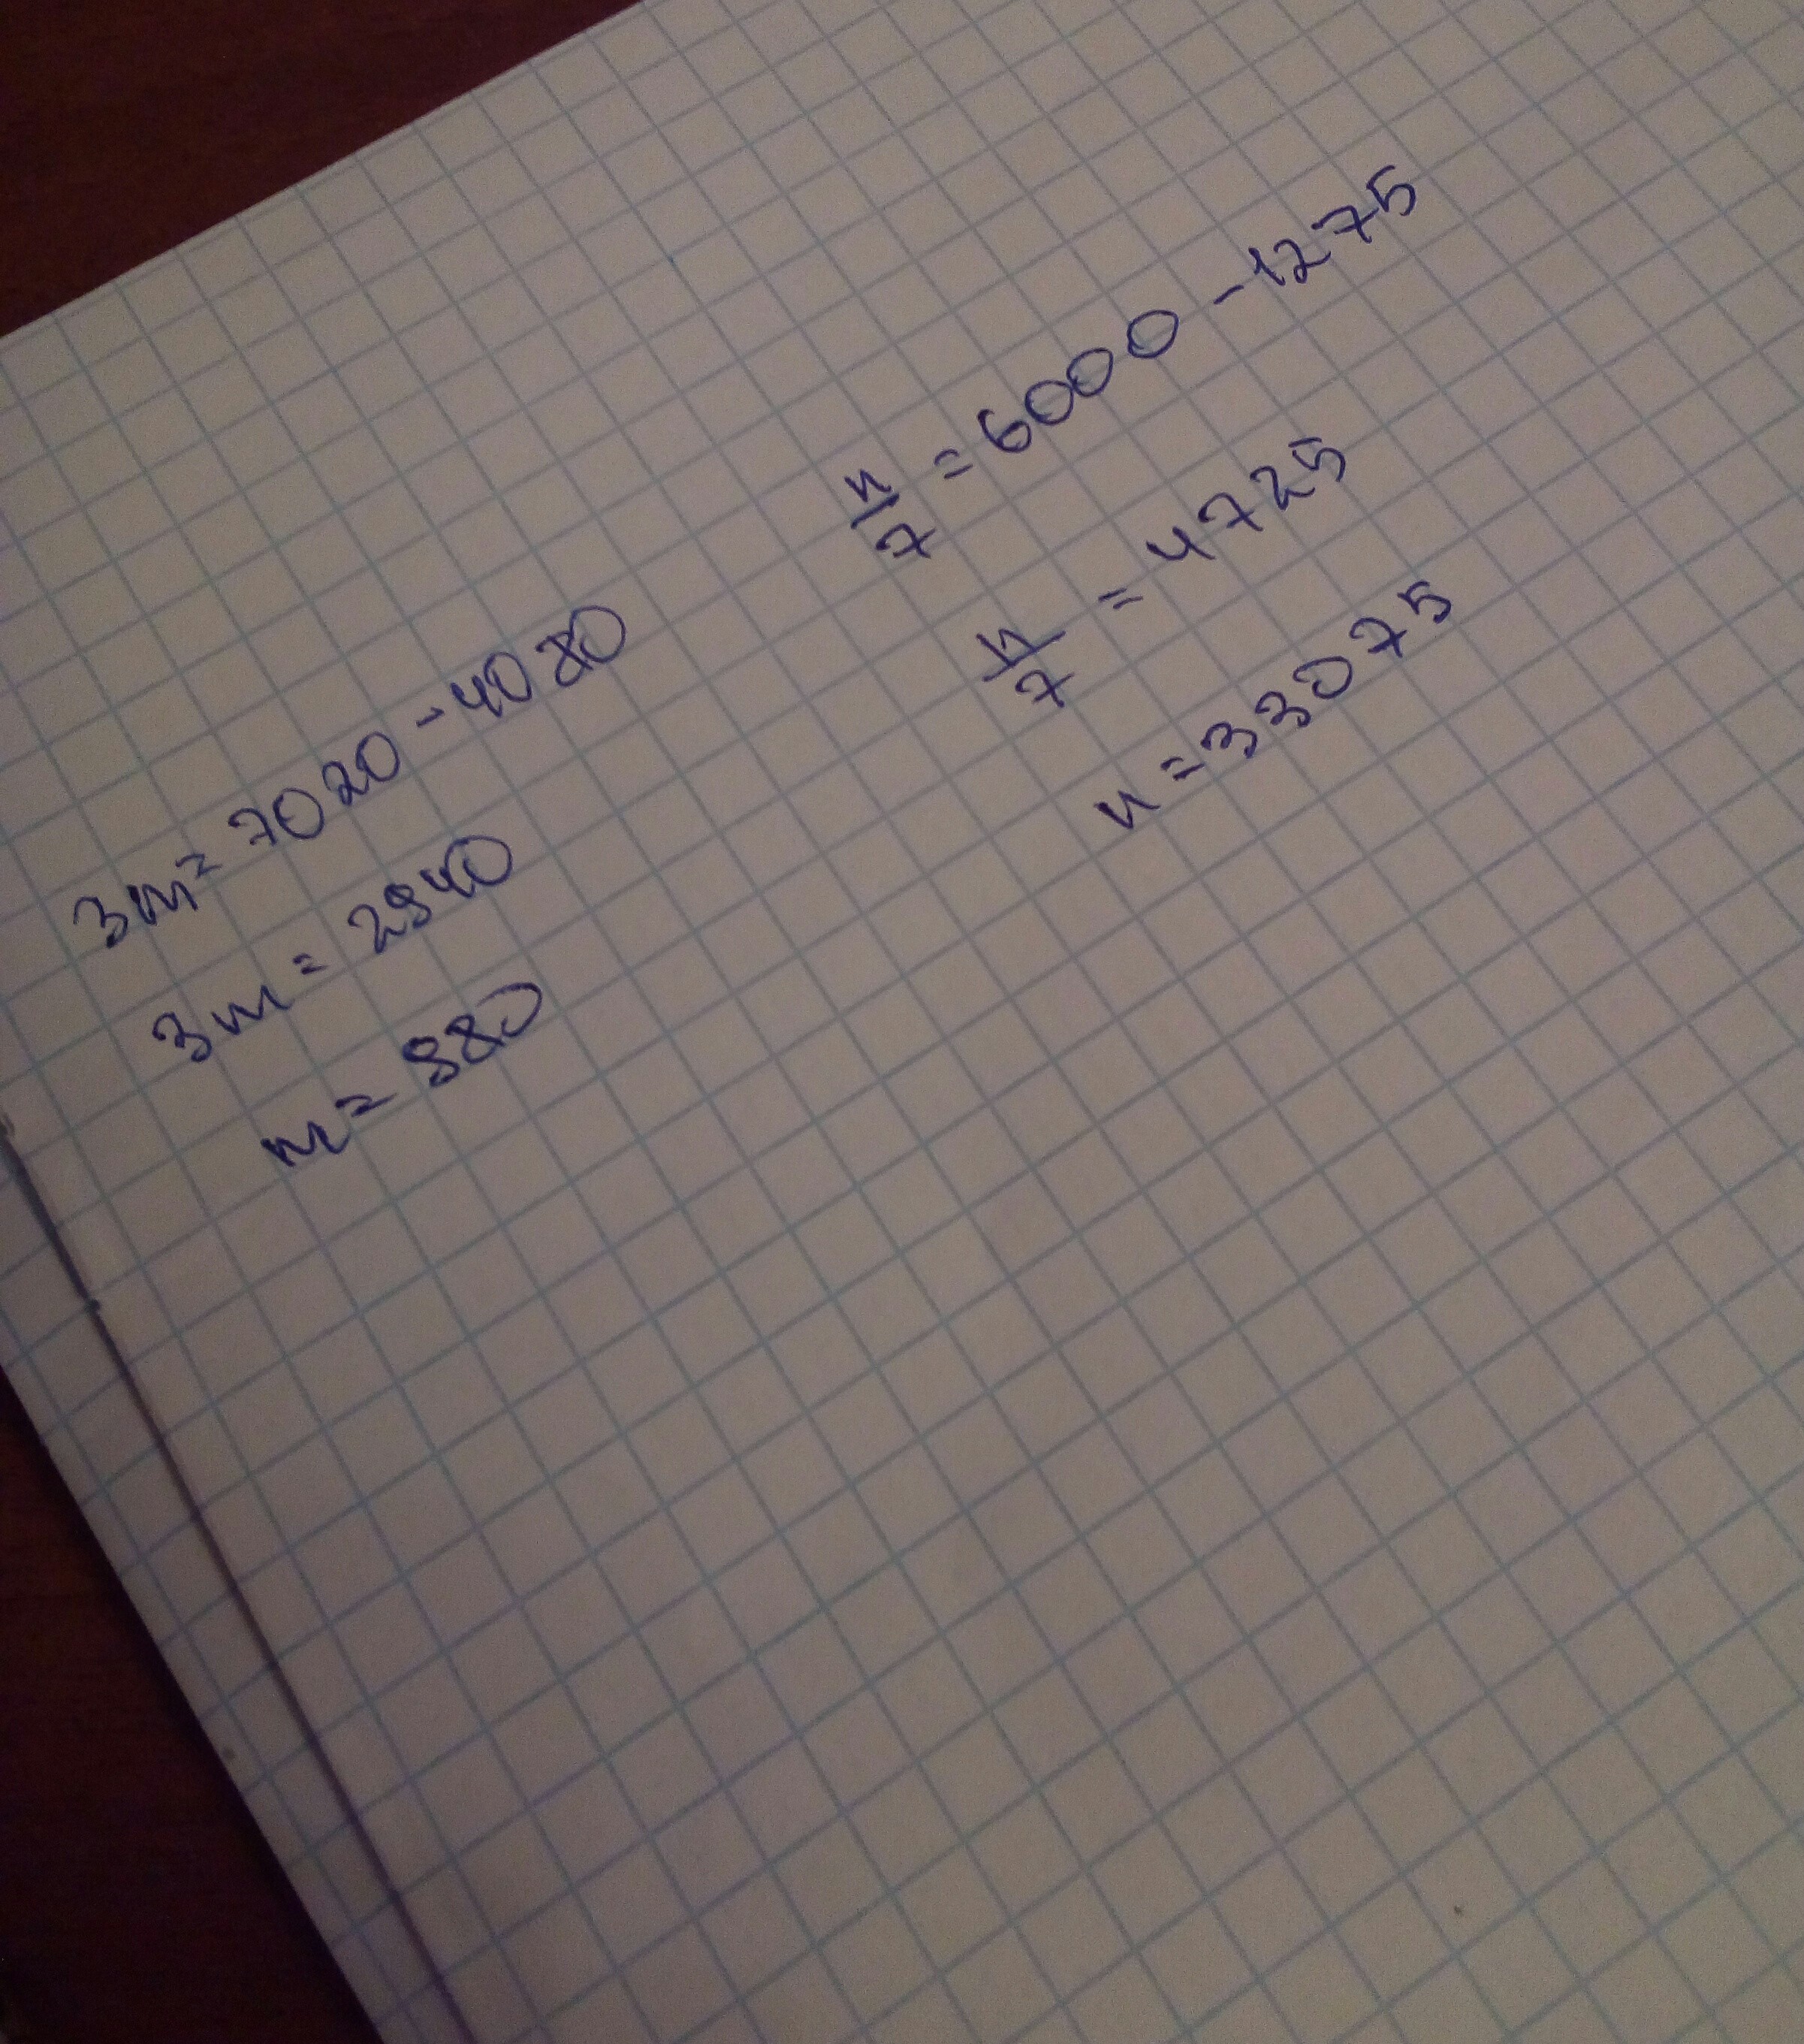 3m = 7020 - 4080
3m = 2940
m = 980
n/7 = 6000 - 1275
n/7 = 4725
n = 33075